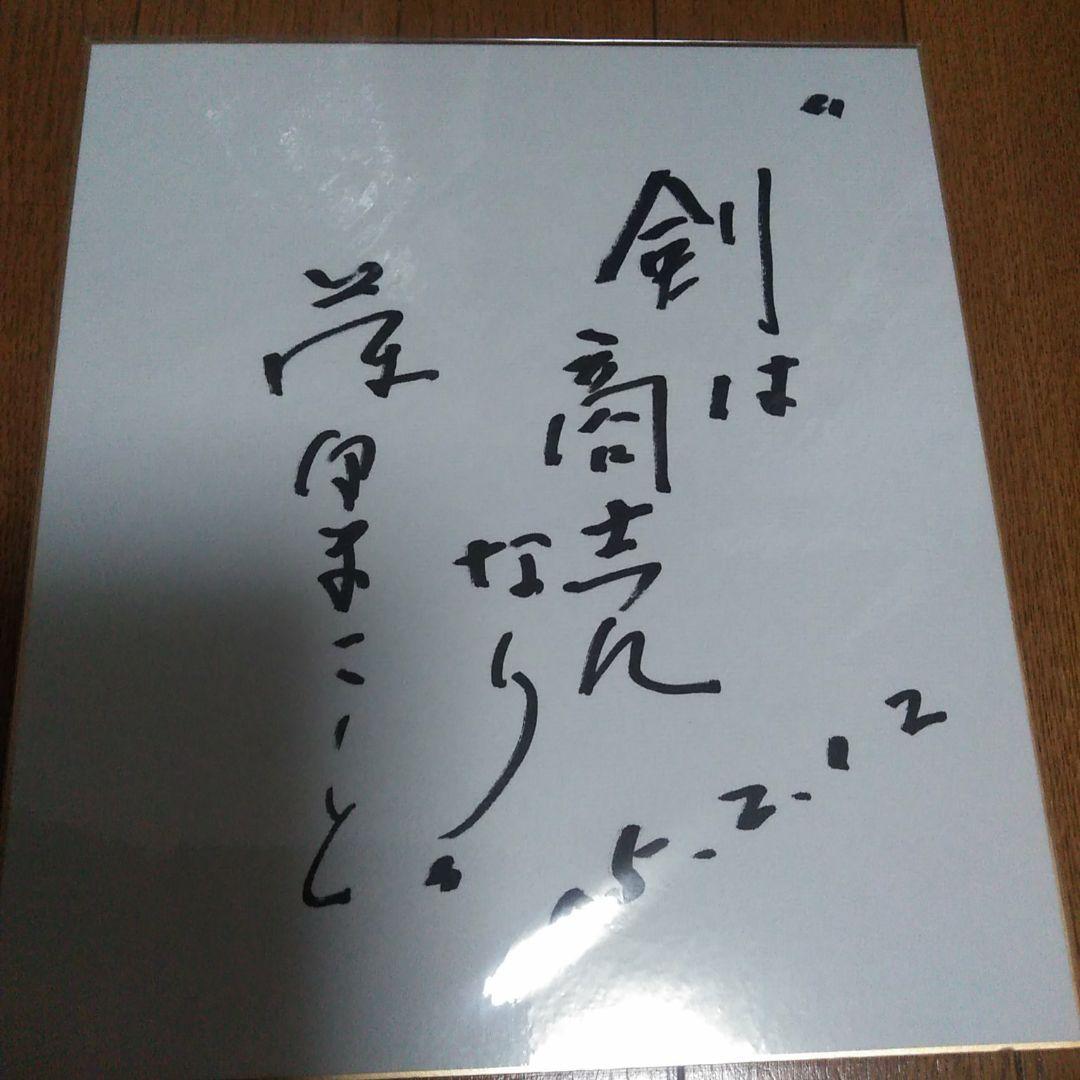 "剣は
商売
なり"
藤田まこと
05.2.12